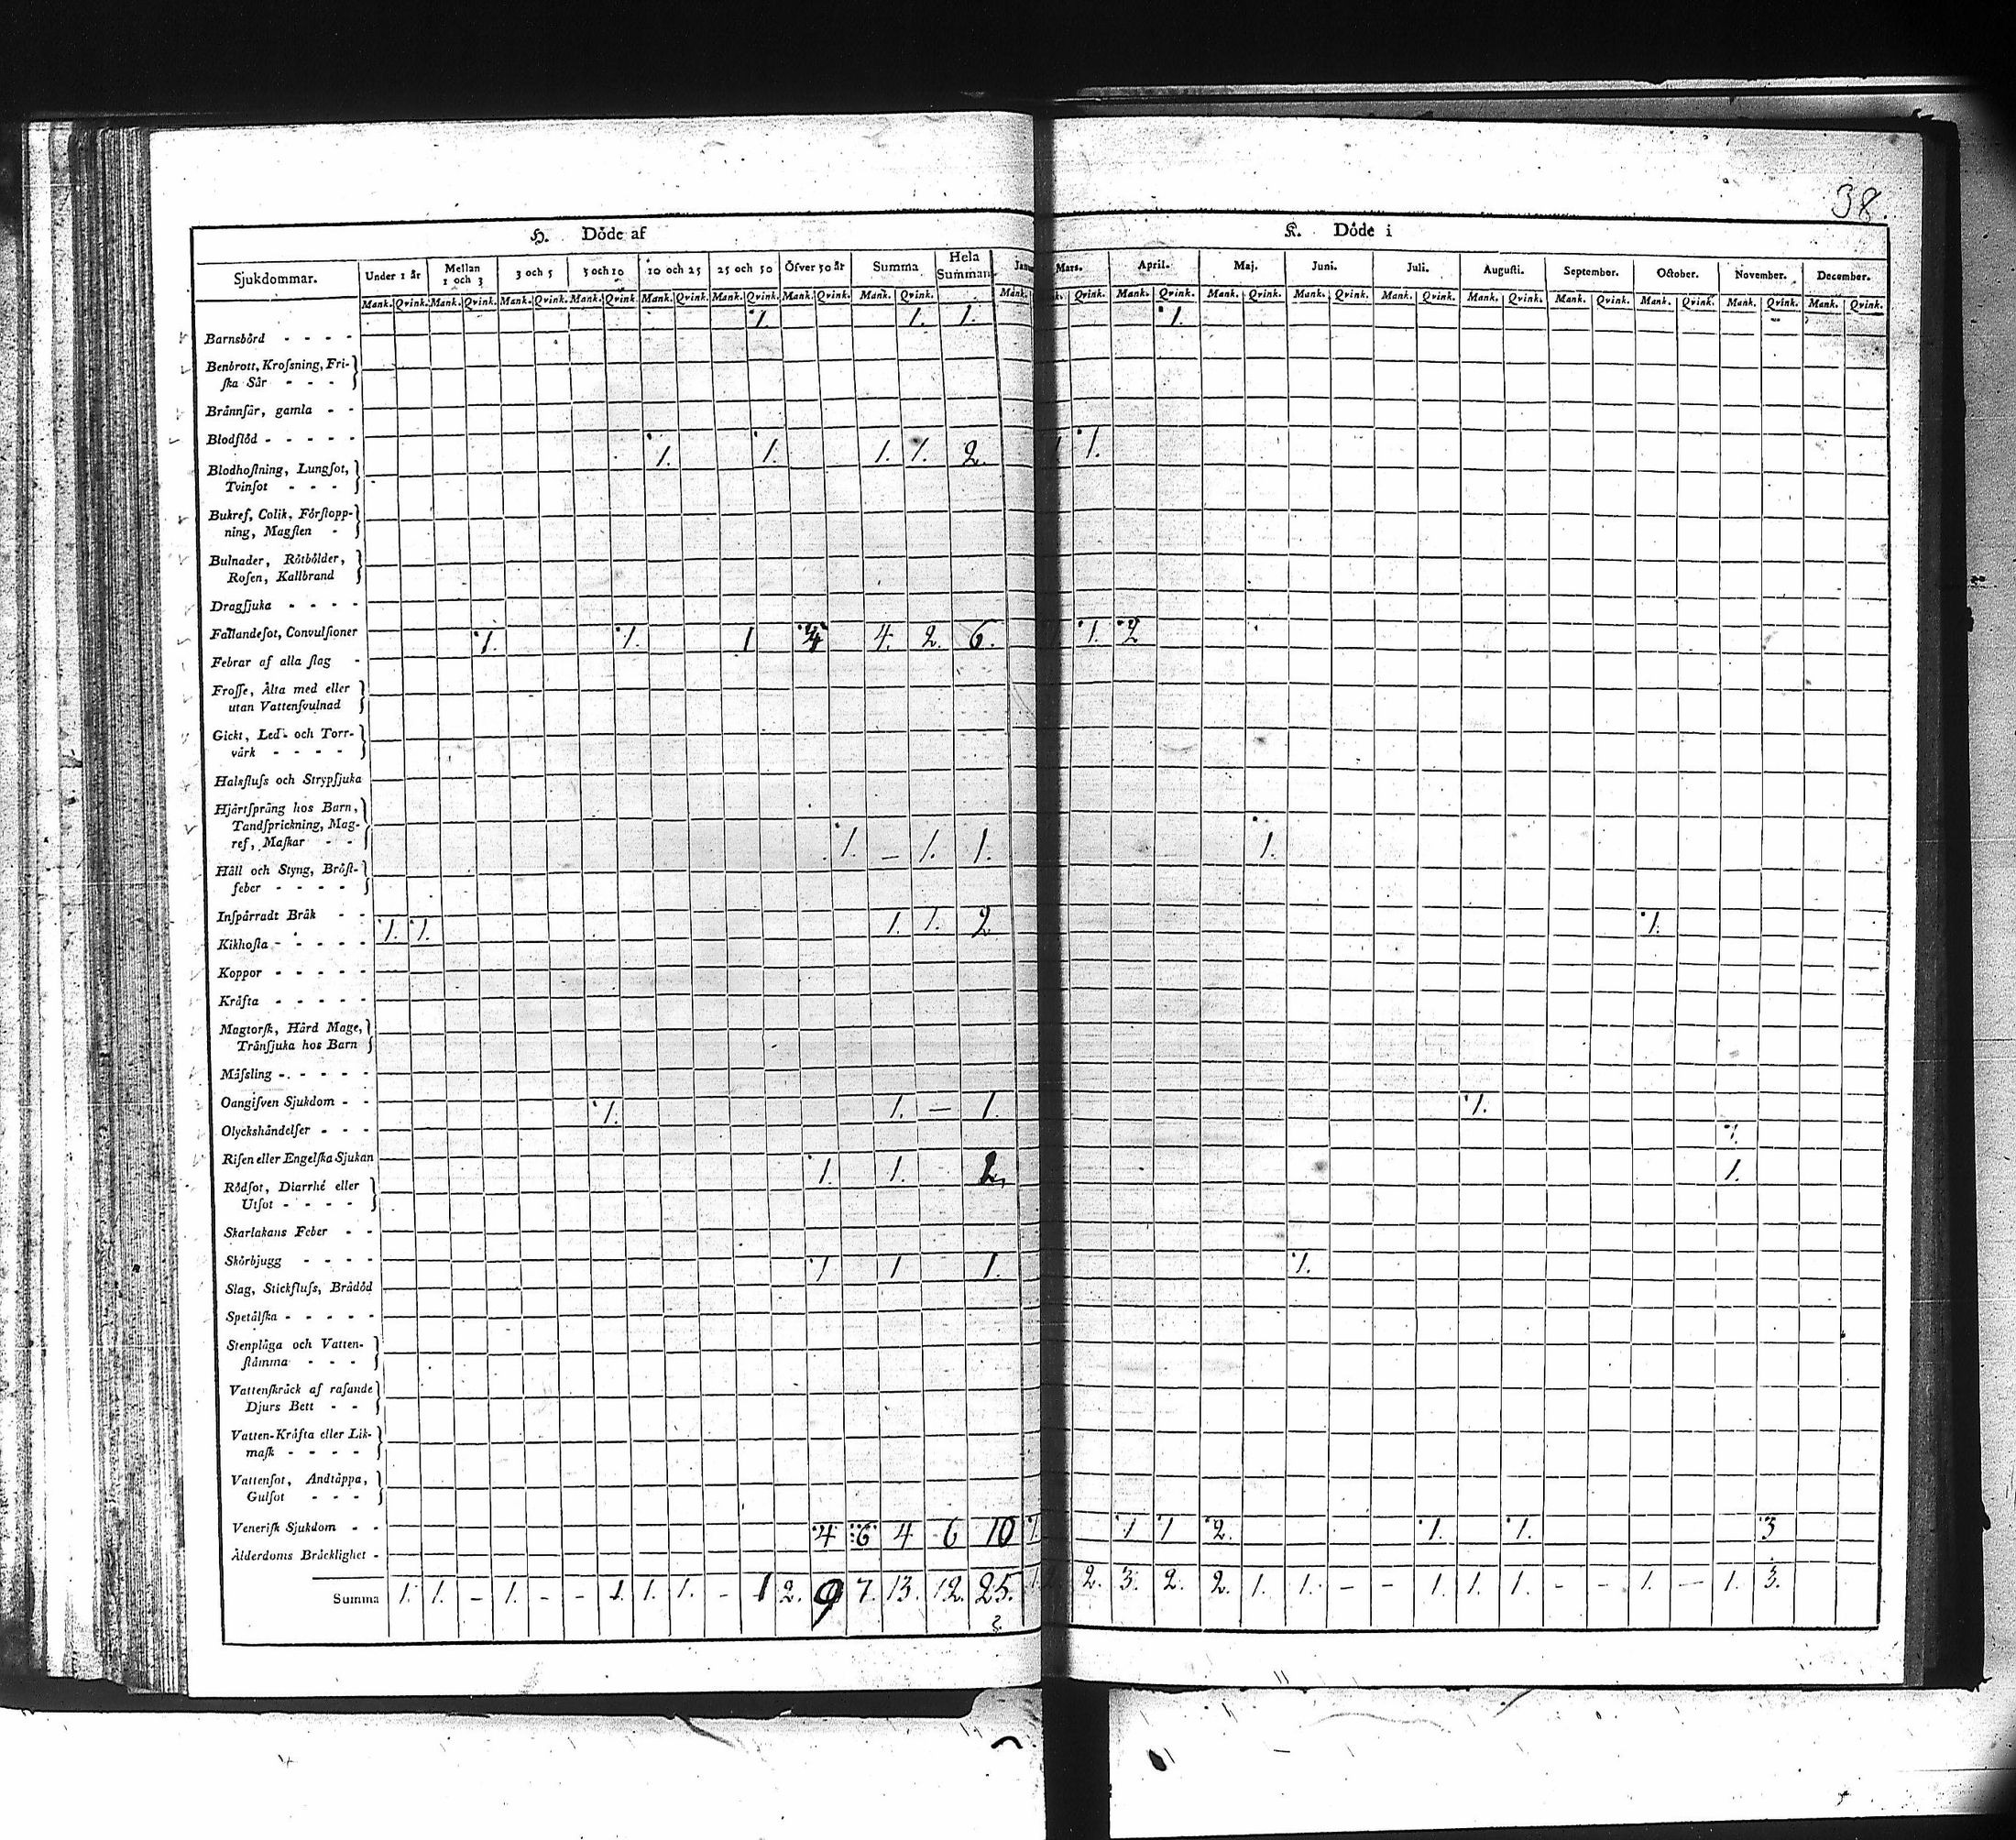 38.
H. Döde af
K. Döde i
Sjukdommar. Under 1 år Mellan 1 och 3 3 och 5 5 och 10 10 och 25 25 och 50 Öfver 50 år Summa Hela Summan. Mars. April. Maj. Juni. Juli. Augusti. September. October. November. December.
Mank. Qvink. Mank. Qvink. Mank. Qvink. Mank. Qvink. Mank. Qvink. Mank. Qvink. Mank. Qvink. Mank. Qvink. Mank. Qvink. Mank. Qvink. Mank. Qvink. Mank. Qvink. Mank. Qvink. Mank. Qvink. Mank. Qvink. Mank. Qvink. Mank. Qvink. Mank. Qvink.
1. 1. 1. 1.
Barnsbörd - - - -
Benbrott, Krofsning, Fri-
ſka Sår - - -
Brännſår, gamla - -
Blodflöd - - - - -
1. 1. 1. 1. 2. 1.
Blodhoſtning, Lungſot,
Tvinſot - - -
Bukref, Colik, Förſtopp-
ning, Magſten -
Bulnader, Rötbölder,
Roſen, Kallbrand
Dragſjuka - - - -
Fallandeſot, Convulſioner
1. 1. 1 4 4. 2. 6. 1. 2
Febrar af alla ſlag -
Froſſe, Älta med eller
utan Vattenſvulnad
Gickt, Led- och Torr-
värk - - - -
Halsfluſs och Strypſjuka
Hjärtſprång hos Barn,
Tandſprickning, Mag-
ref, Maſkar - -
1. — 1. 1. 1.
Håll och Styng, Bröſt-
feber - - - -
Inſpärradt Bråk - -
1. 1. 1. 1. 2 1.
Kikhoſta - - - - -
Koppor - - - - -
Kräfta - - - - -
Magtorſk, Hård Mage,
Tränſjuka hos Barn
Mäſsling - - - - -
Oangifven Sjukdom - -
1. 1. — 1. 1.
Olyckshändelſer - - -
1.
Riſen eller Engelſka Sjukan
1. 1. 1.
Rödſot, Diarrhé eller
Utſot - - - -
Skarlakans Feber - -
Skörbjugg - - - -
1 1 1. 1.
Slag, Stickfluſs, Brådöd
Spetälſka - - - - -
Stenplåga och Vatten-
ſtämma - - -
Vattenſkräck af raſande
Djurs Bett - -
Vatten-Kräfta eller Lik-
maſk - - - -
Vattenſot, Andtäppa,
Gulſot - - -
Veneriſk Sjukdom - -
4 6 4 6 10 1. 1 1 2. 1. 1. 3
Ålderdoms Bräcklighet -
Summa 1. 1. - 1. - - 1. 1. 1. - 1 2. 9 7. 13. 12. 25. 2. 3. 2. 2. 1. 1. - - 1. 1. 1. - - 1. — 1. 3.